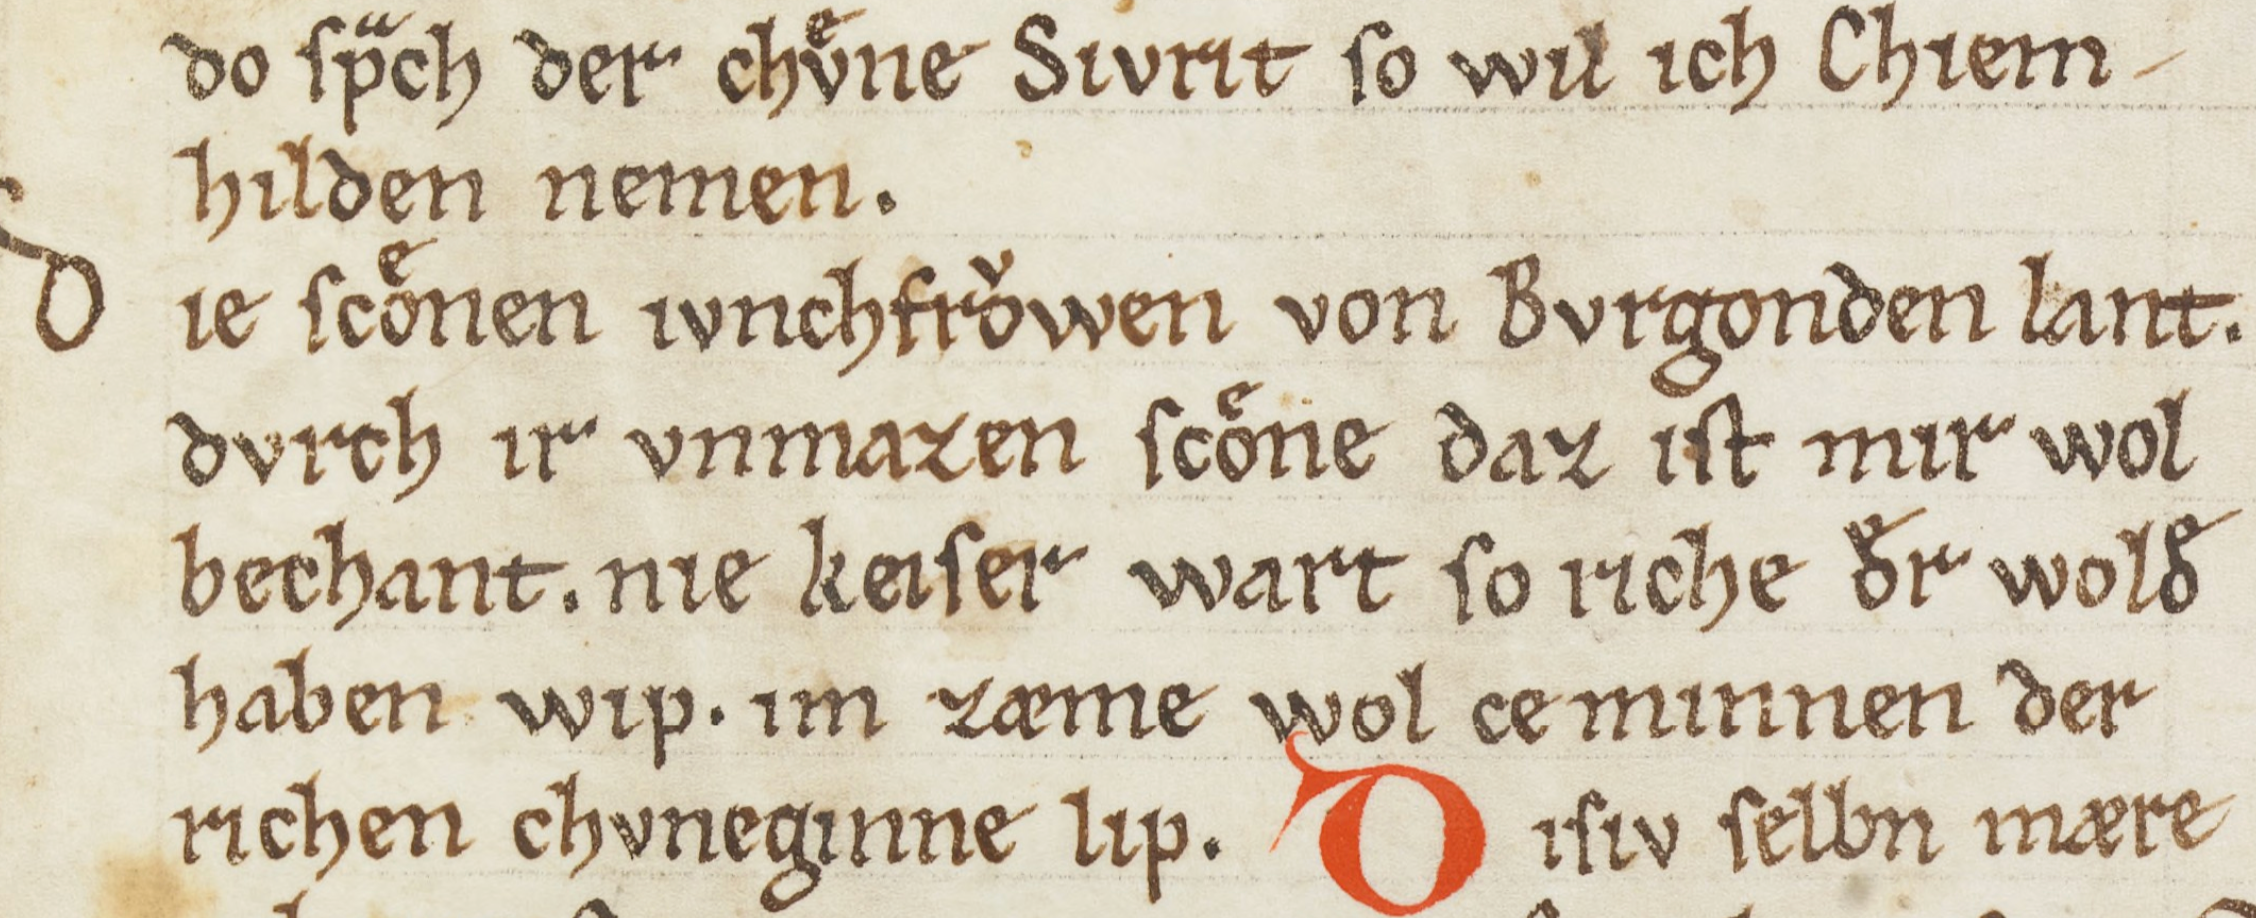 do ſpᷓch der chvͤne Sivrit ſo wil ich Chiem-
hilden nemen.
D ie ſcoͤnen ivnchfroͮwen von Bvrgonden lant.
dvrch ir vnmazen ſcoͤne daz iſt mir wol
bechant. nie keiſer wart ſo riche dͤr woldͤ
haben wip. im zæme wol ce minnen der
richen chvneginne lip. D iſiv ſelbn mære